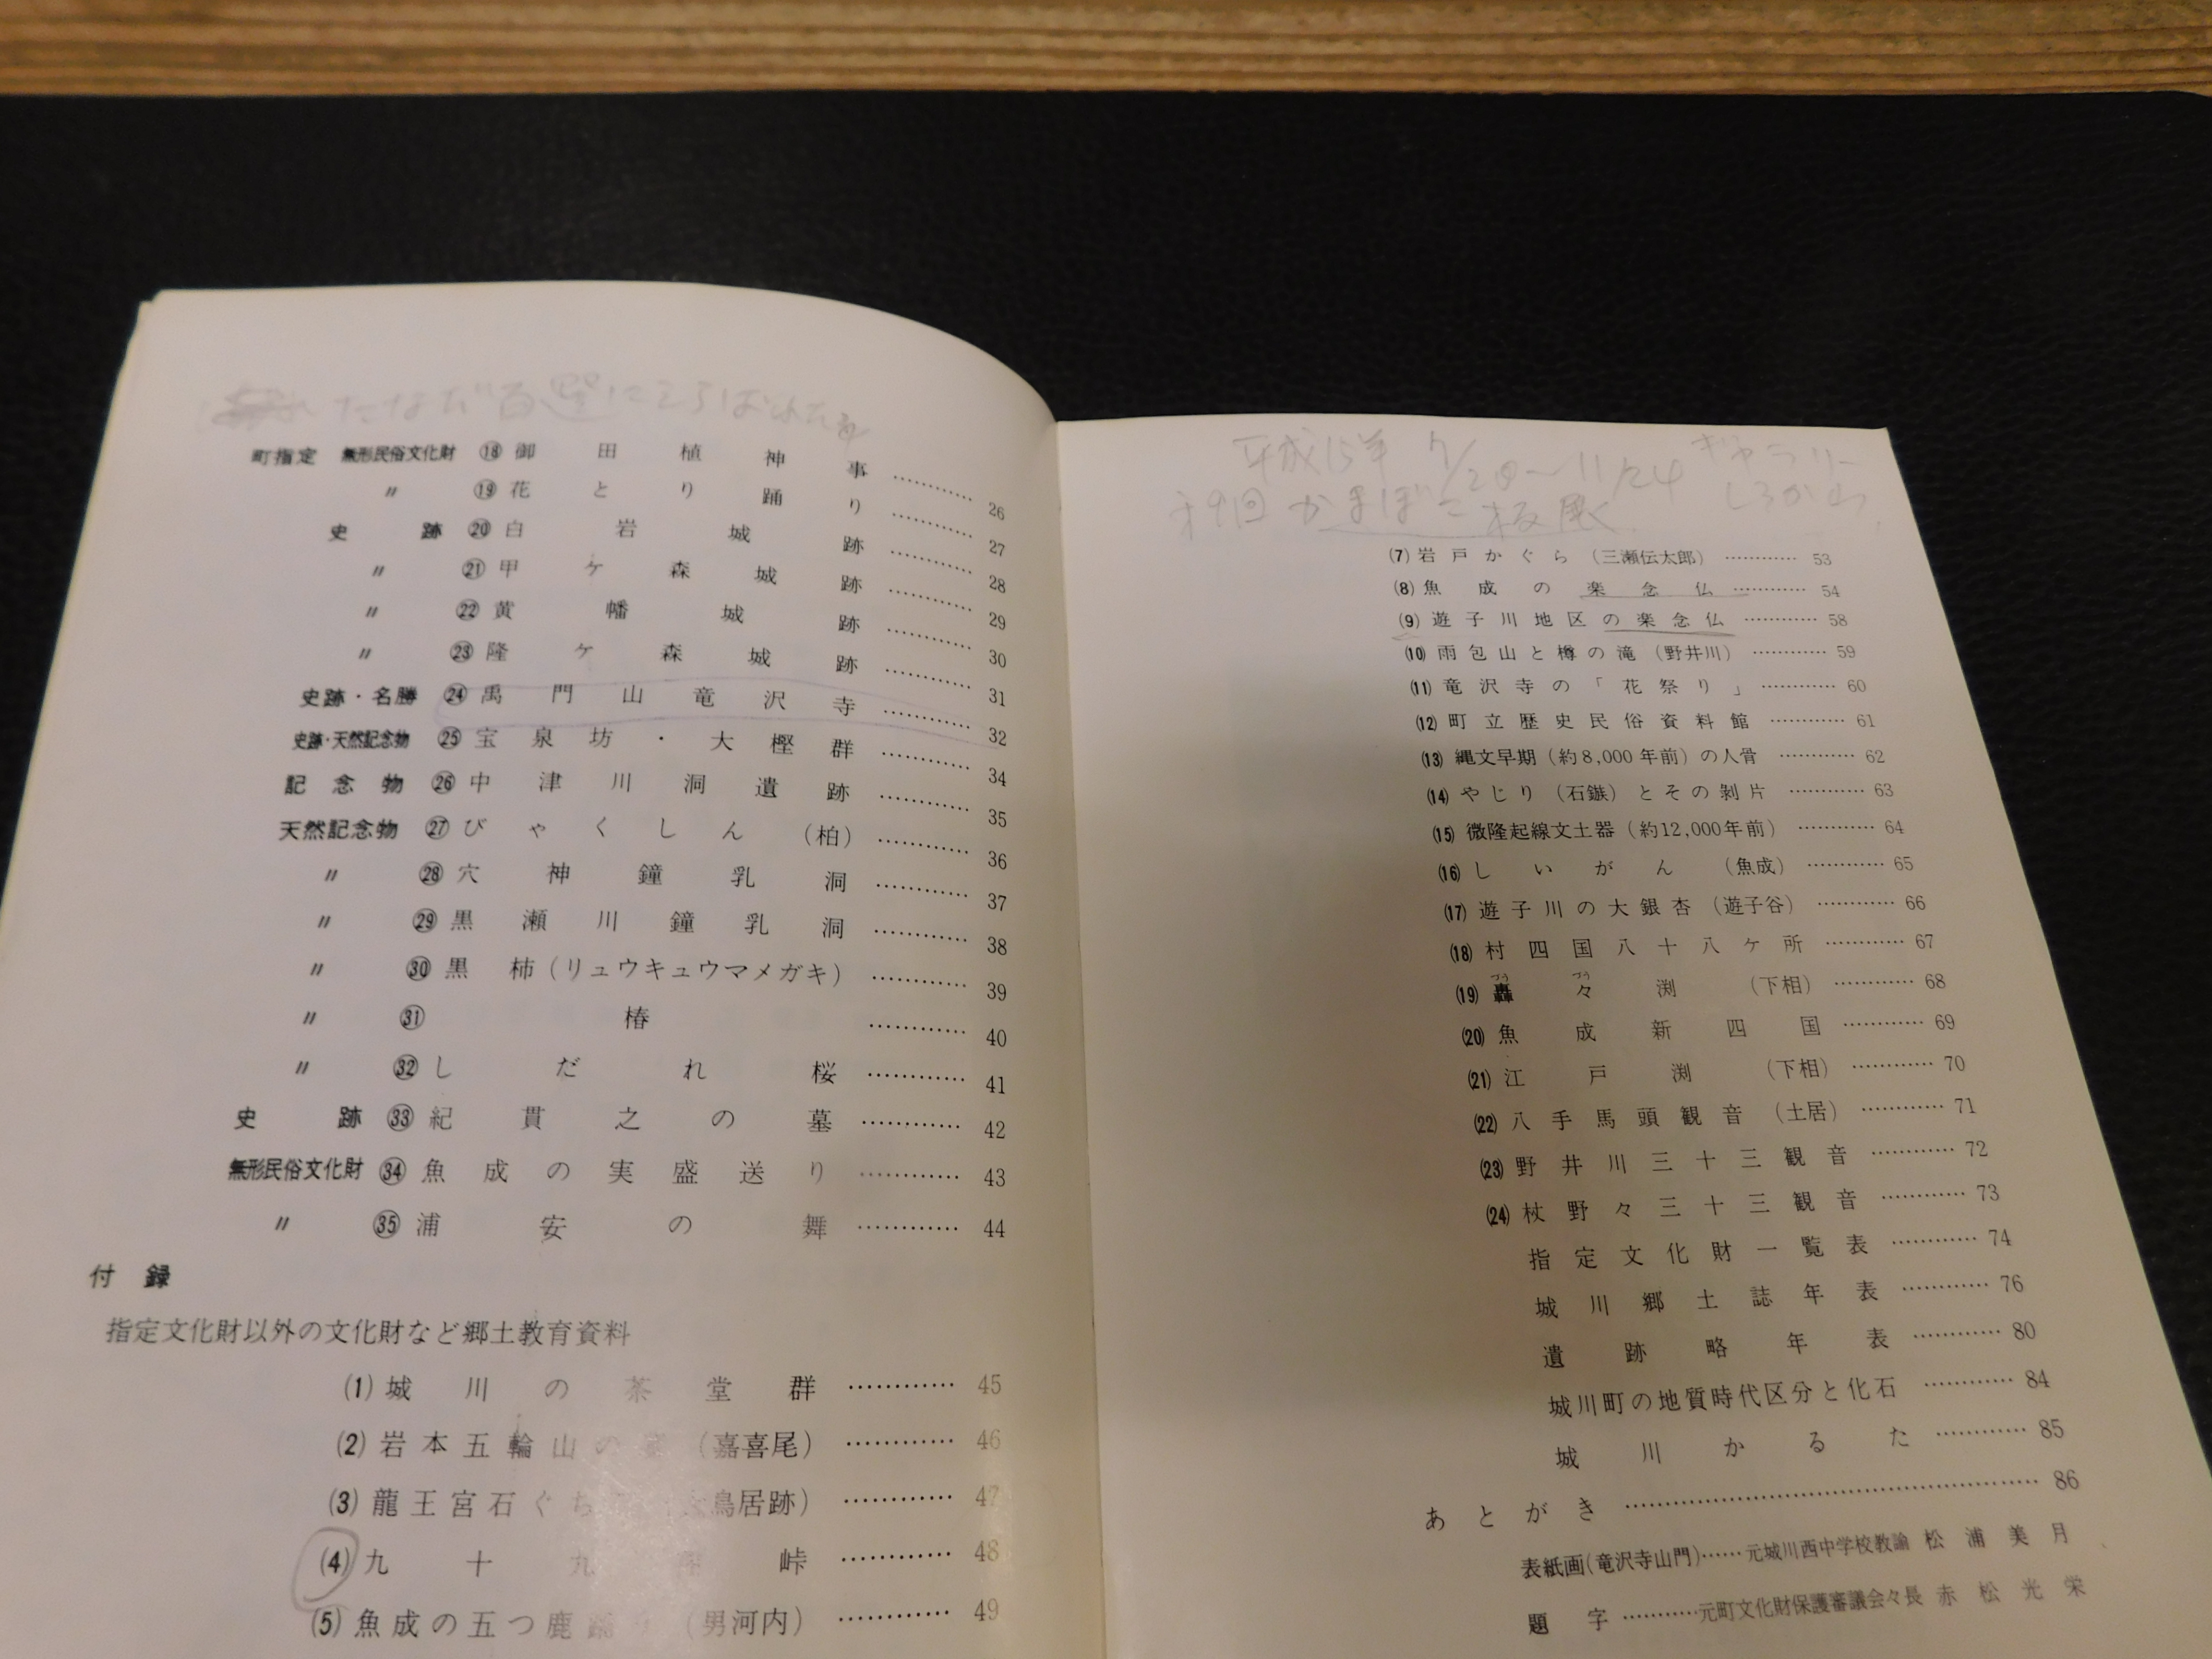 たなだ百選にえらばれた
町指定 無形民俗文化財 ⑱ 御田植神事 ………… 26
〃 ⑲ 花とり踊り ………… 27
史跡 ⑳ 白岩城跡 ………… 28
〃 ㉑ 甲ケ森城跡 ………… 29
〃 ㉒ 黄幡城跡 ………… 30
〃 ㉓ 隆ケ森城跡 ………… 31
史跡・名勝 ㉔ 禹門山竜沢寺 ………… 32
史跡・天然記念物 ㉕ 宝泉坊・大樫群 ………… 34
記念物 ㉖ 中津川洞遺跡 ………… 35
天然記念物 ㉗ びゃくしん (柏) ………… 36
〃 ㉘ 穴神鐘乳洞 ………… 37
〃 ㉙ 黒瀬川鐘乳洞 ………… 38
〃 ㉚ 黒柿(リュウキュウマメガキ) ………… 39
〃 ㉛ 椿 ………… 40
〃 ㉜ しだれ桜 ………… 41
史跡 ㉝ 紀貫之の墓 ………… 42
無形民俗文化財 ㉞ 魚成の実盛送り ………… 43
〃 ㉟ 浦安の舞 ………… 44
付録
指定文化財以外の文化財など郷土教育資料
(1) 城川の茶堂群 ………… 45
(2) 岩本五輪山の (嘉喜尾) ………… 46
(3) 龍王宮石ぐち 鳥居跡) ………… 47
(4) 九十九 峠 ………… 48
(5) 魚成の五つ鹿踊り (男河内) ………… 49
平成15年 7/20〜11/24 ギャラリー
才9回 かまぼこ板展 しろかわ
(7) 岩戸かぐら (三瀬伝太郎) ………… 53
(8) 魚成の楽念仏 ………… 54
(9) 遊子川地区の楽念仏 ………… 58
(10) 雨包山と樽の滝 (野井川) ………… 59
(11) 竜沢寺の「花祭り」 ………… 60
(12) 町立歴史民俗資料館 ………… 61
(13) 縄文早期 (約8,000年前) の人骨 ………… 62
(14) やじり (石鏃) とその剝片 ………… 63
(15) 微隆起線文土器 (約12,000年前) ………… 64
(16) しいがん (魚成) ………… 65
(17) 遊子川の大銀杏 (遊子谷) ………… 66
(18) 村四国八十八ケ所 ………… 67
(19) 轟々渕 (下相) ………… 68
(20) 魚成新四国 ………… 69
(21) 江戸渕 (下相) ………… 70
(22) 八手馬頭観音 (土居) ………… 71
(23) 野井川三十三観音 ………… 72
(24) 杖野々三十三観音 ………… 73
指定文化財一覧表 ………… 74
城川郷土誌年表 ………… 76
遺跡略年表 ………… 80
城川町の地質時代区分と化石 ………… 84
城川かるた ………… 85
あとがき ………… 86
表紙画(竜沢寺山門)……元城川西中学校教諭 松浦美月
題字 …………元町文化財保護審議会々長 赤松光栄